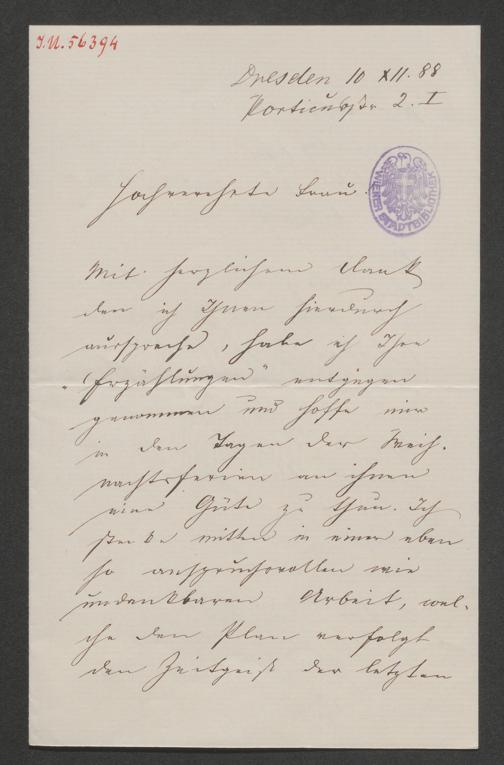 J.N. 56394
Dresden 10 XII. 88
Porticusstr 2. I
WIENER STADTBIBLIOTHEK
Hochverehrte Frau.
Mit herzlichem Dank
den ich Ihnen hierdurch
ausspreche, habe ich Ihre
"Erzählungen" entgegen
genommen und hoffe mir
in den Tagen der Weih-
nachtsferien an ihnen
eine Güte zu thun. Ich
stecke mitten in einer eben
so anspruchsvollen wie
undankbaren Arbeit, wel-
che den Plan verfolgt
den Zeitgeist der letzten